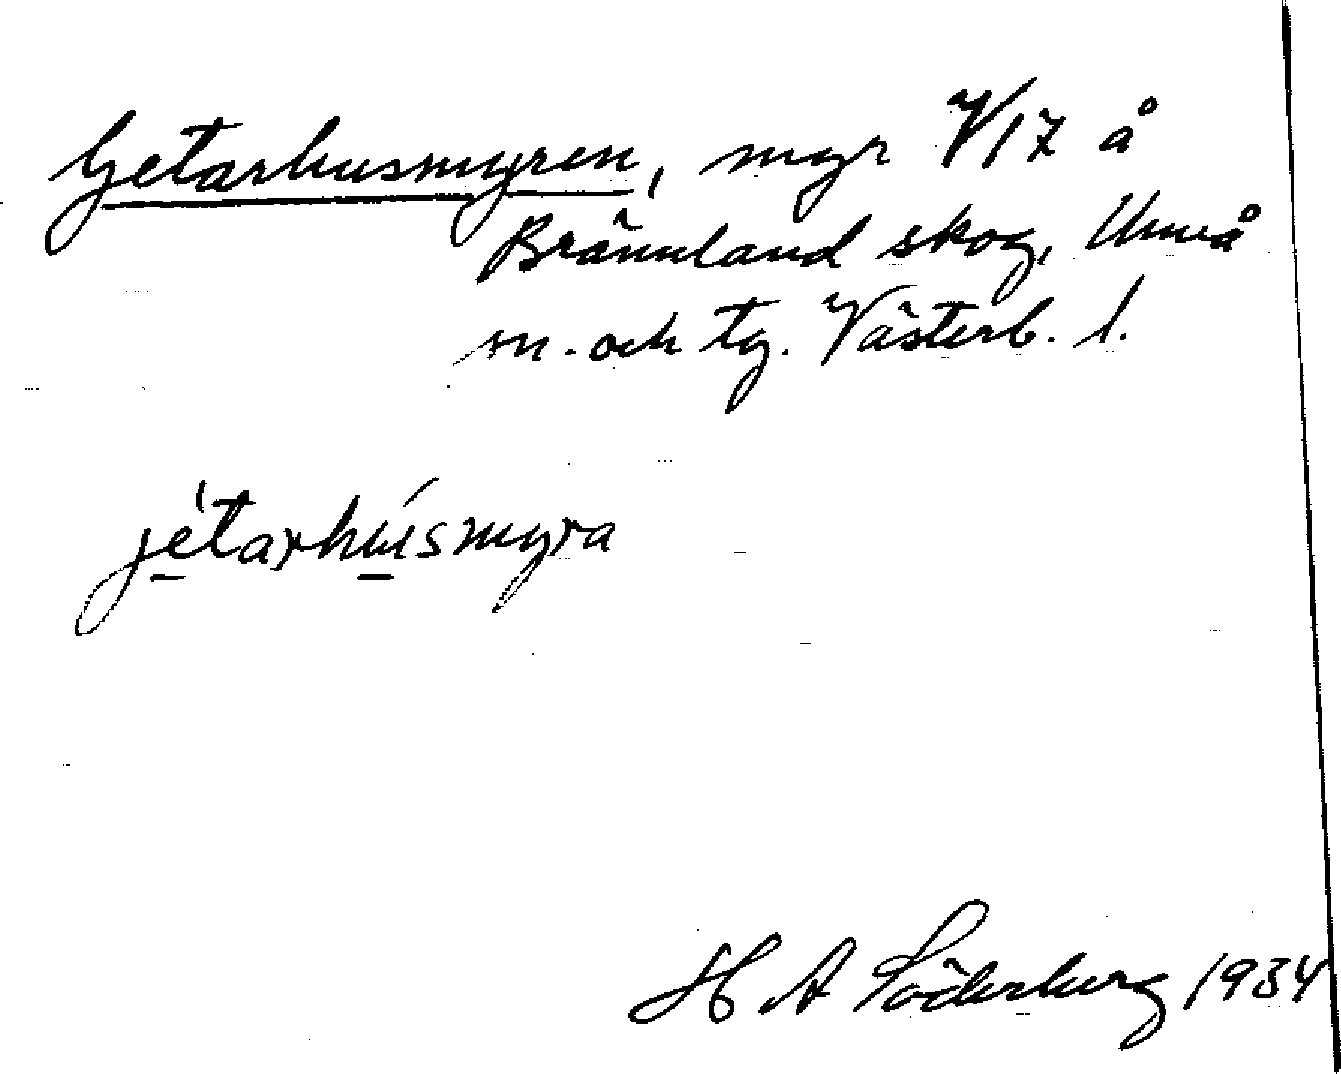 Getarhusmyren, myr V17 å
Brännland skog, Umeå
sn. och tg. Västerb. l.
jétarhúsmyra
H A Söderberg 1934